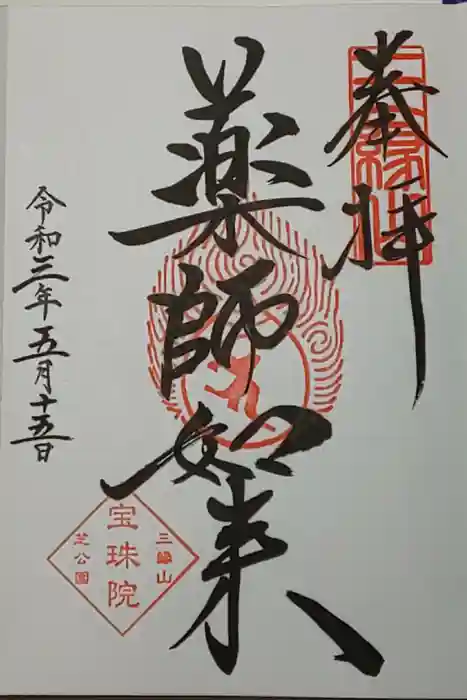 奉拝
三縁山
薬師如来
三縁山
宝珠院
芝公園
令和三年五月十五日